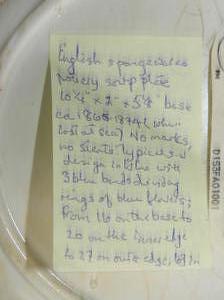 English spongeware
pottery soup plate
10 ¼" x 2" x 5 ⅝" base
ca 1860s-1870s, when
lost at sea? No marks,
no scents, typical
design in blue with
3 blue bands dividing
rings of blue flowers;
from 16 on the base to
20 on the inner edge
to 27 on outer edge,
D1S3FA01001